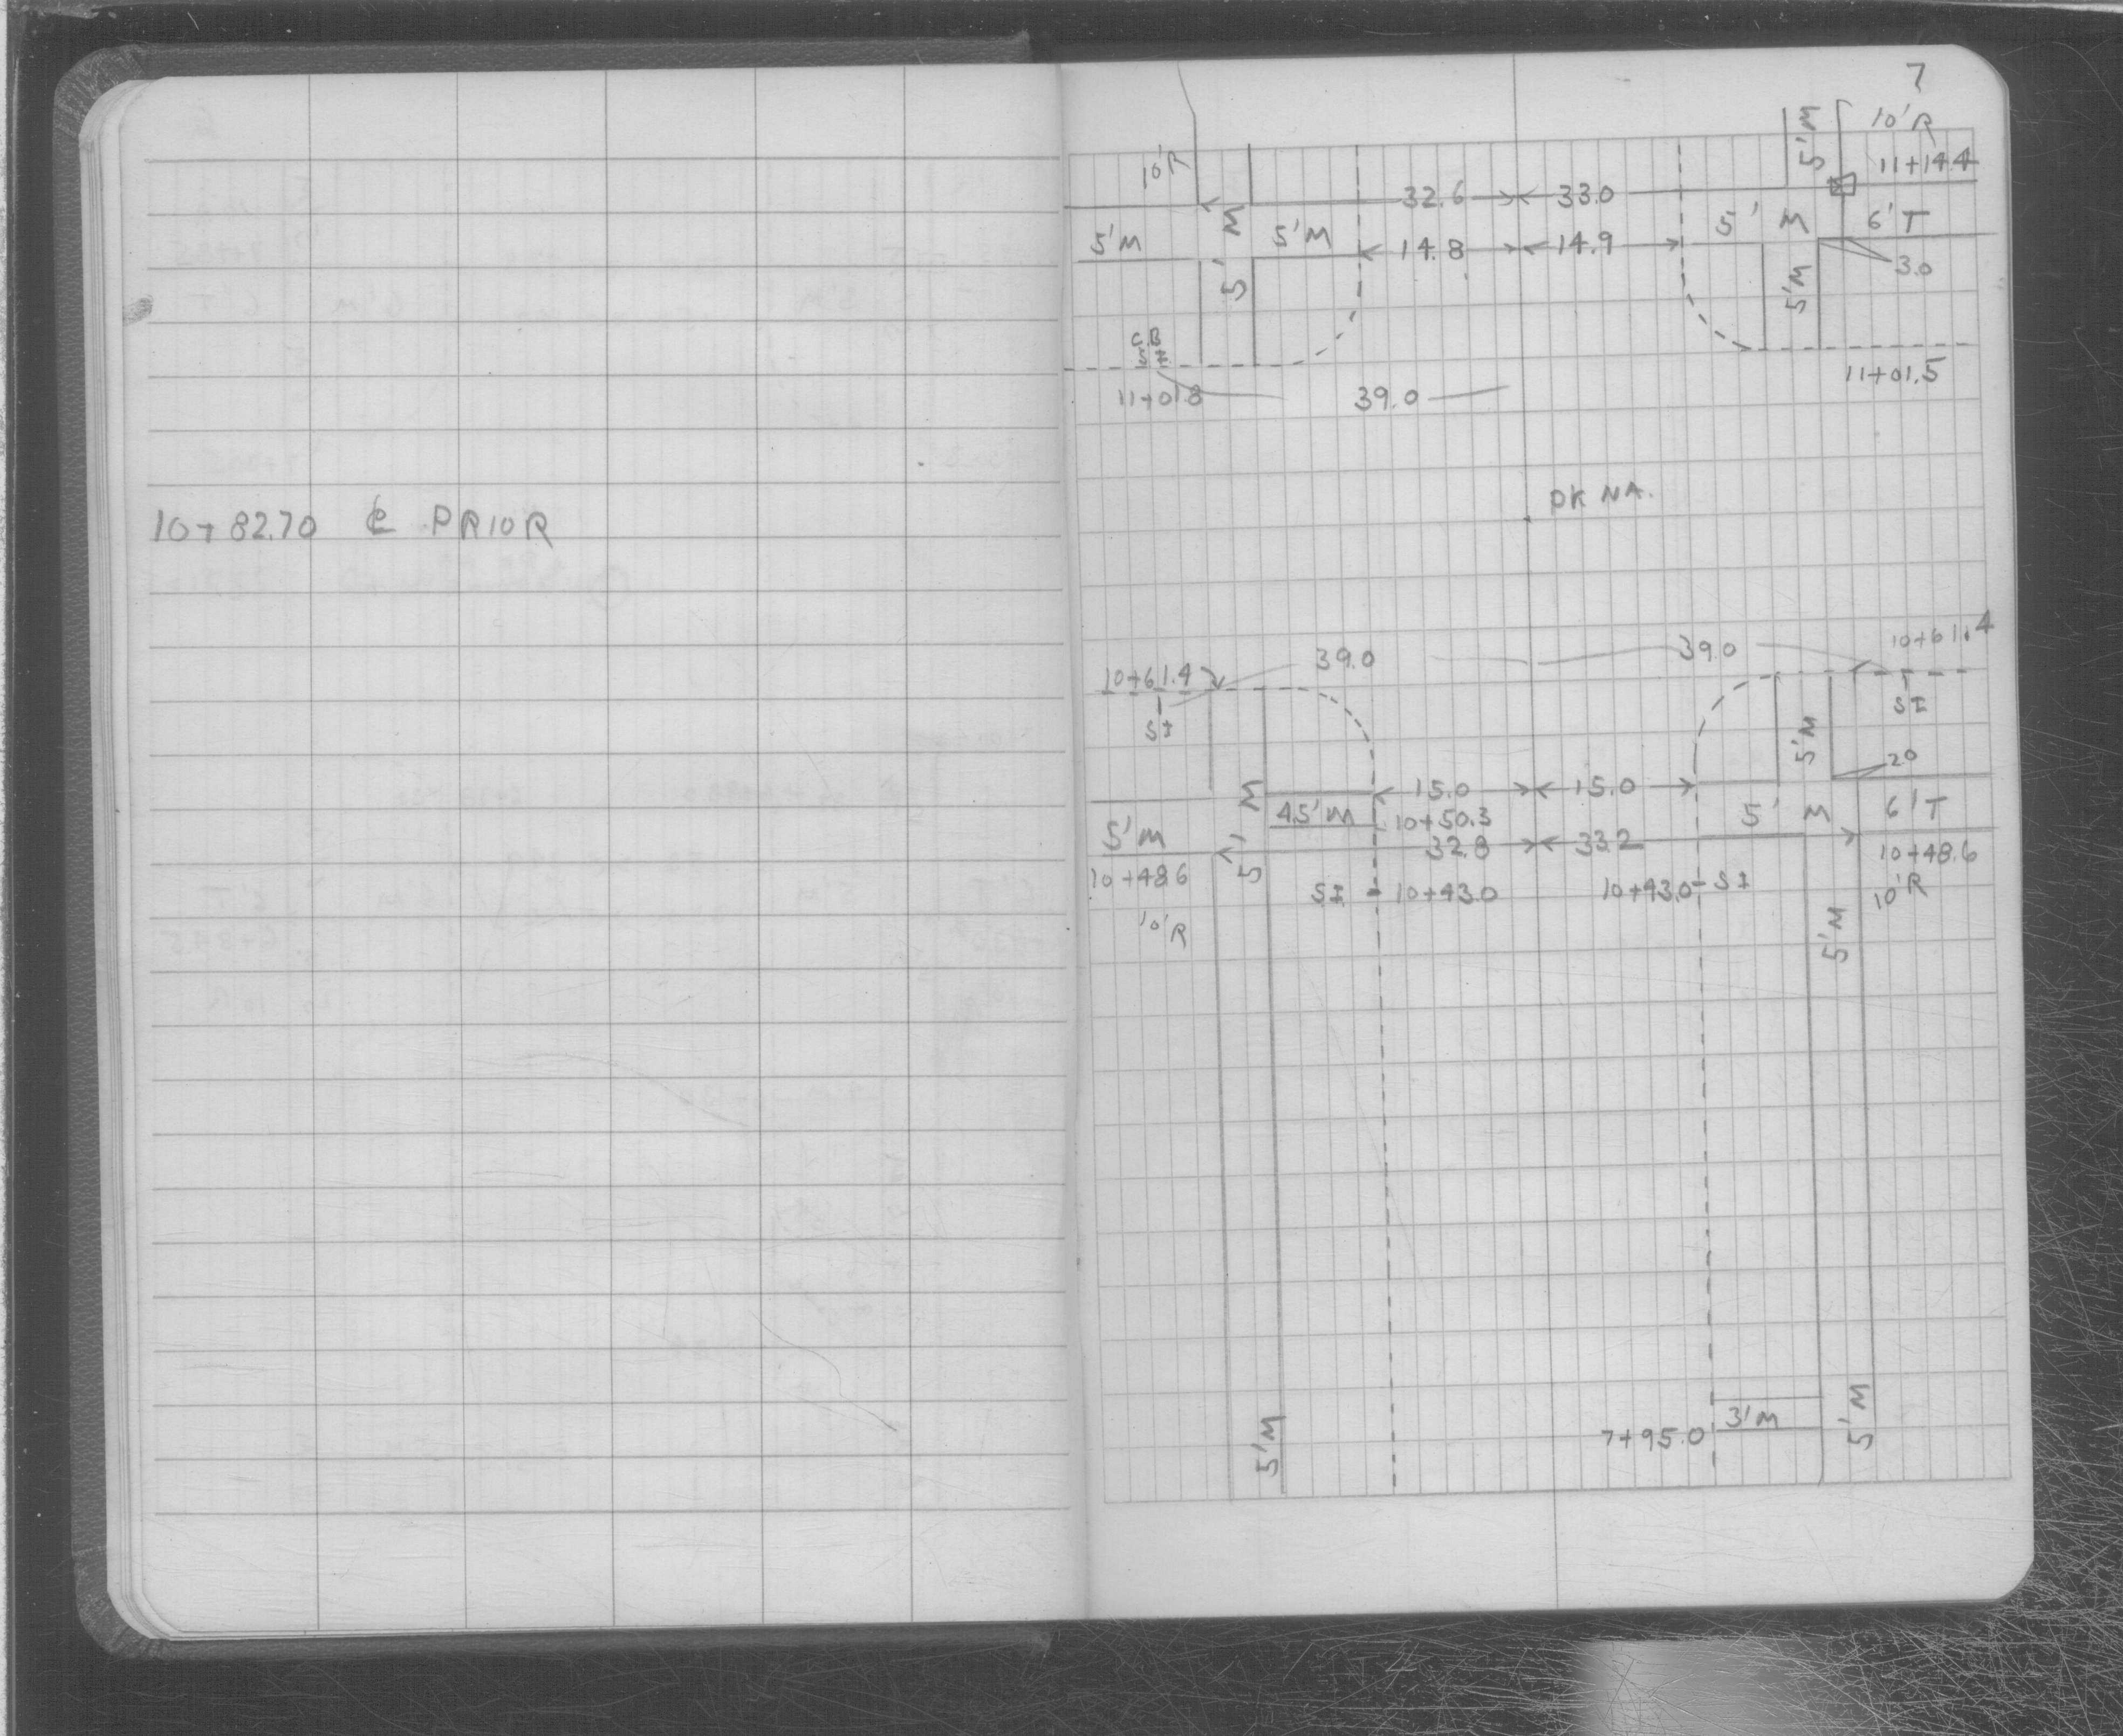 10+82.70 ℄ PRIOR
7
10'R
5'M
10'R
11+14.4
32.6
33.0
5'M
5'M
5'M
14.8
14.9
5'M
6'T
5'M
3.0
C.B
11+01.8
39.0
11+01.5
PK NA.
10+61.4
39.0
39.0
10+61.4
SI
SI
5'M
20
15.0
15.0
5'M
4.5'M
10+50.3
5'M
6'T
5'M
32.8
33.2
10+48.6
10+48.6
SI
10+43.0
10+43.0
SI
10'R
10'R
5'M
5'M
7+95.0
3'M
5'M